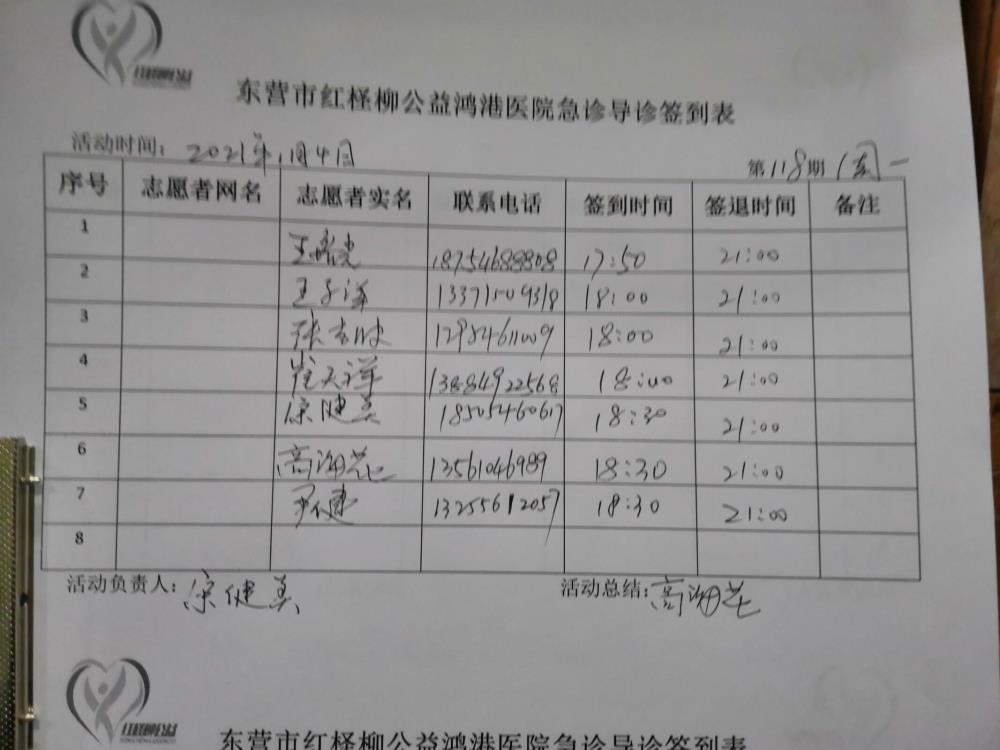 红柽柳公益
东营市红柽柳公益鸿港医院急诊导诊签到表
活动时间：2021年1月4日 第118期（周一
序号 志愿者网名 志愿者实名 联系电话 签到时间 签退时间 备注
1 18754688808 17:50 21:00
2 王子洋 13371509318 18:00 21:00
3 18:00 21:00
4 崔天祥 13884922568 18:00 21:00
5 徐健美 18505460617 18:30 21:00
6 高湘花 13561046989 18:30 21:00
7 尹健 13255612057 18:30 21:00
8
活动负责人：徐健美 活动总结：高湘花
红柽柳公益
东营市红柽柳公益鸿港医院急诊导诊签到表